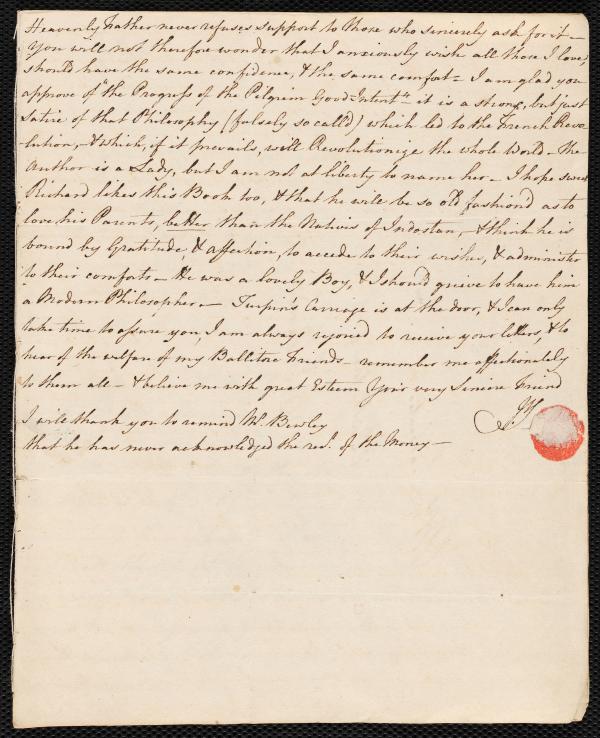 Heavenly Father never refuses support to those who sincerely ask for it –
You will not therefore wonder that I anxiously wish all those I love,
should have the same confidence, & the same comfort – I am glad you
approve of the Progress of the Pilgrim Good-Intent" – it is a strong, but just
Satire of that Philosophy (falsely so call'd) which led to the French Revo
-lution, – & which, if it prevails, will Revolutionize the whole World – the
Author is a Lady, but I am not at liberty to name her – I hope sweet
Richard likes this Book too, & that he will be so old fashion'd as to
love his Parents, better than the Natives of Indostan, – & think he is
bound by Gratitude, & affection, to accede to their wishes, & administer
to their comforts – He was a lovely Boy, & I should grieve to have him
a Modern Philosopher – Turpin's Carriage is at the door, & I can only
take time to assure you, I am always rejoiced to receive your letters, & to
hear of the welfare of my Ballitore Friends – remember me affectionately
to them all – & believe me with great Esteem Your very Sincere Friend
I will thank you to remind Mr. Bewley
that he has never acknowledged the rect. of the Money –